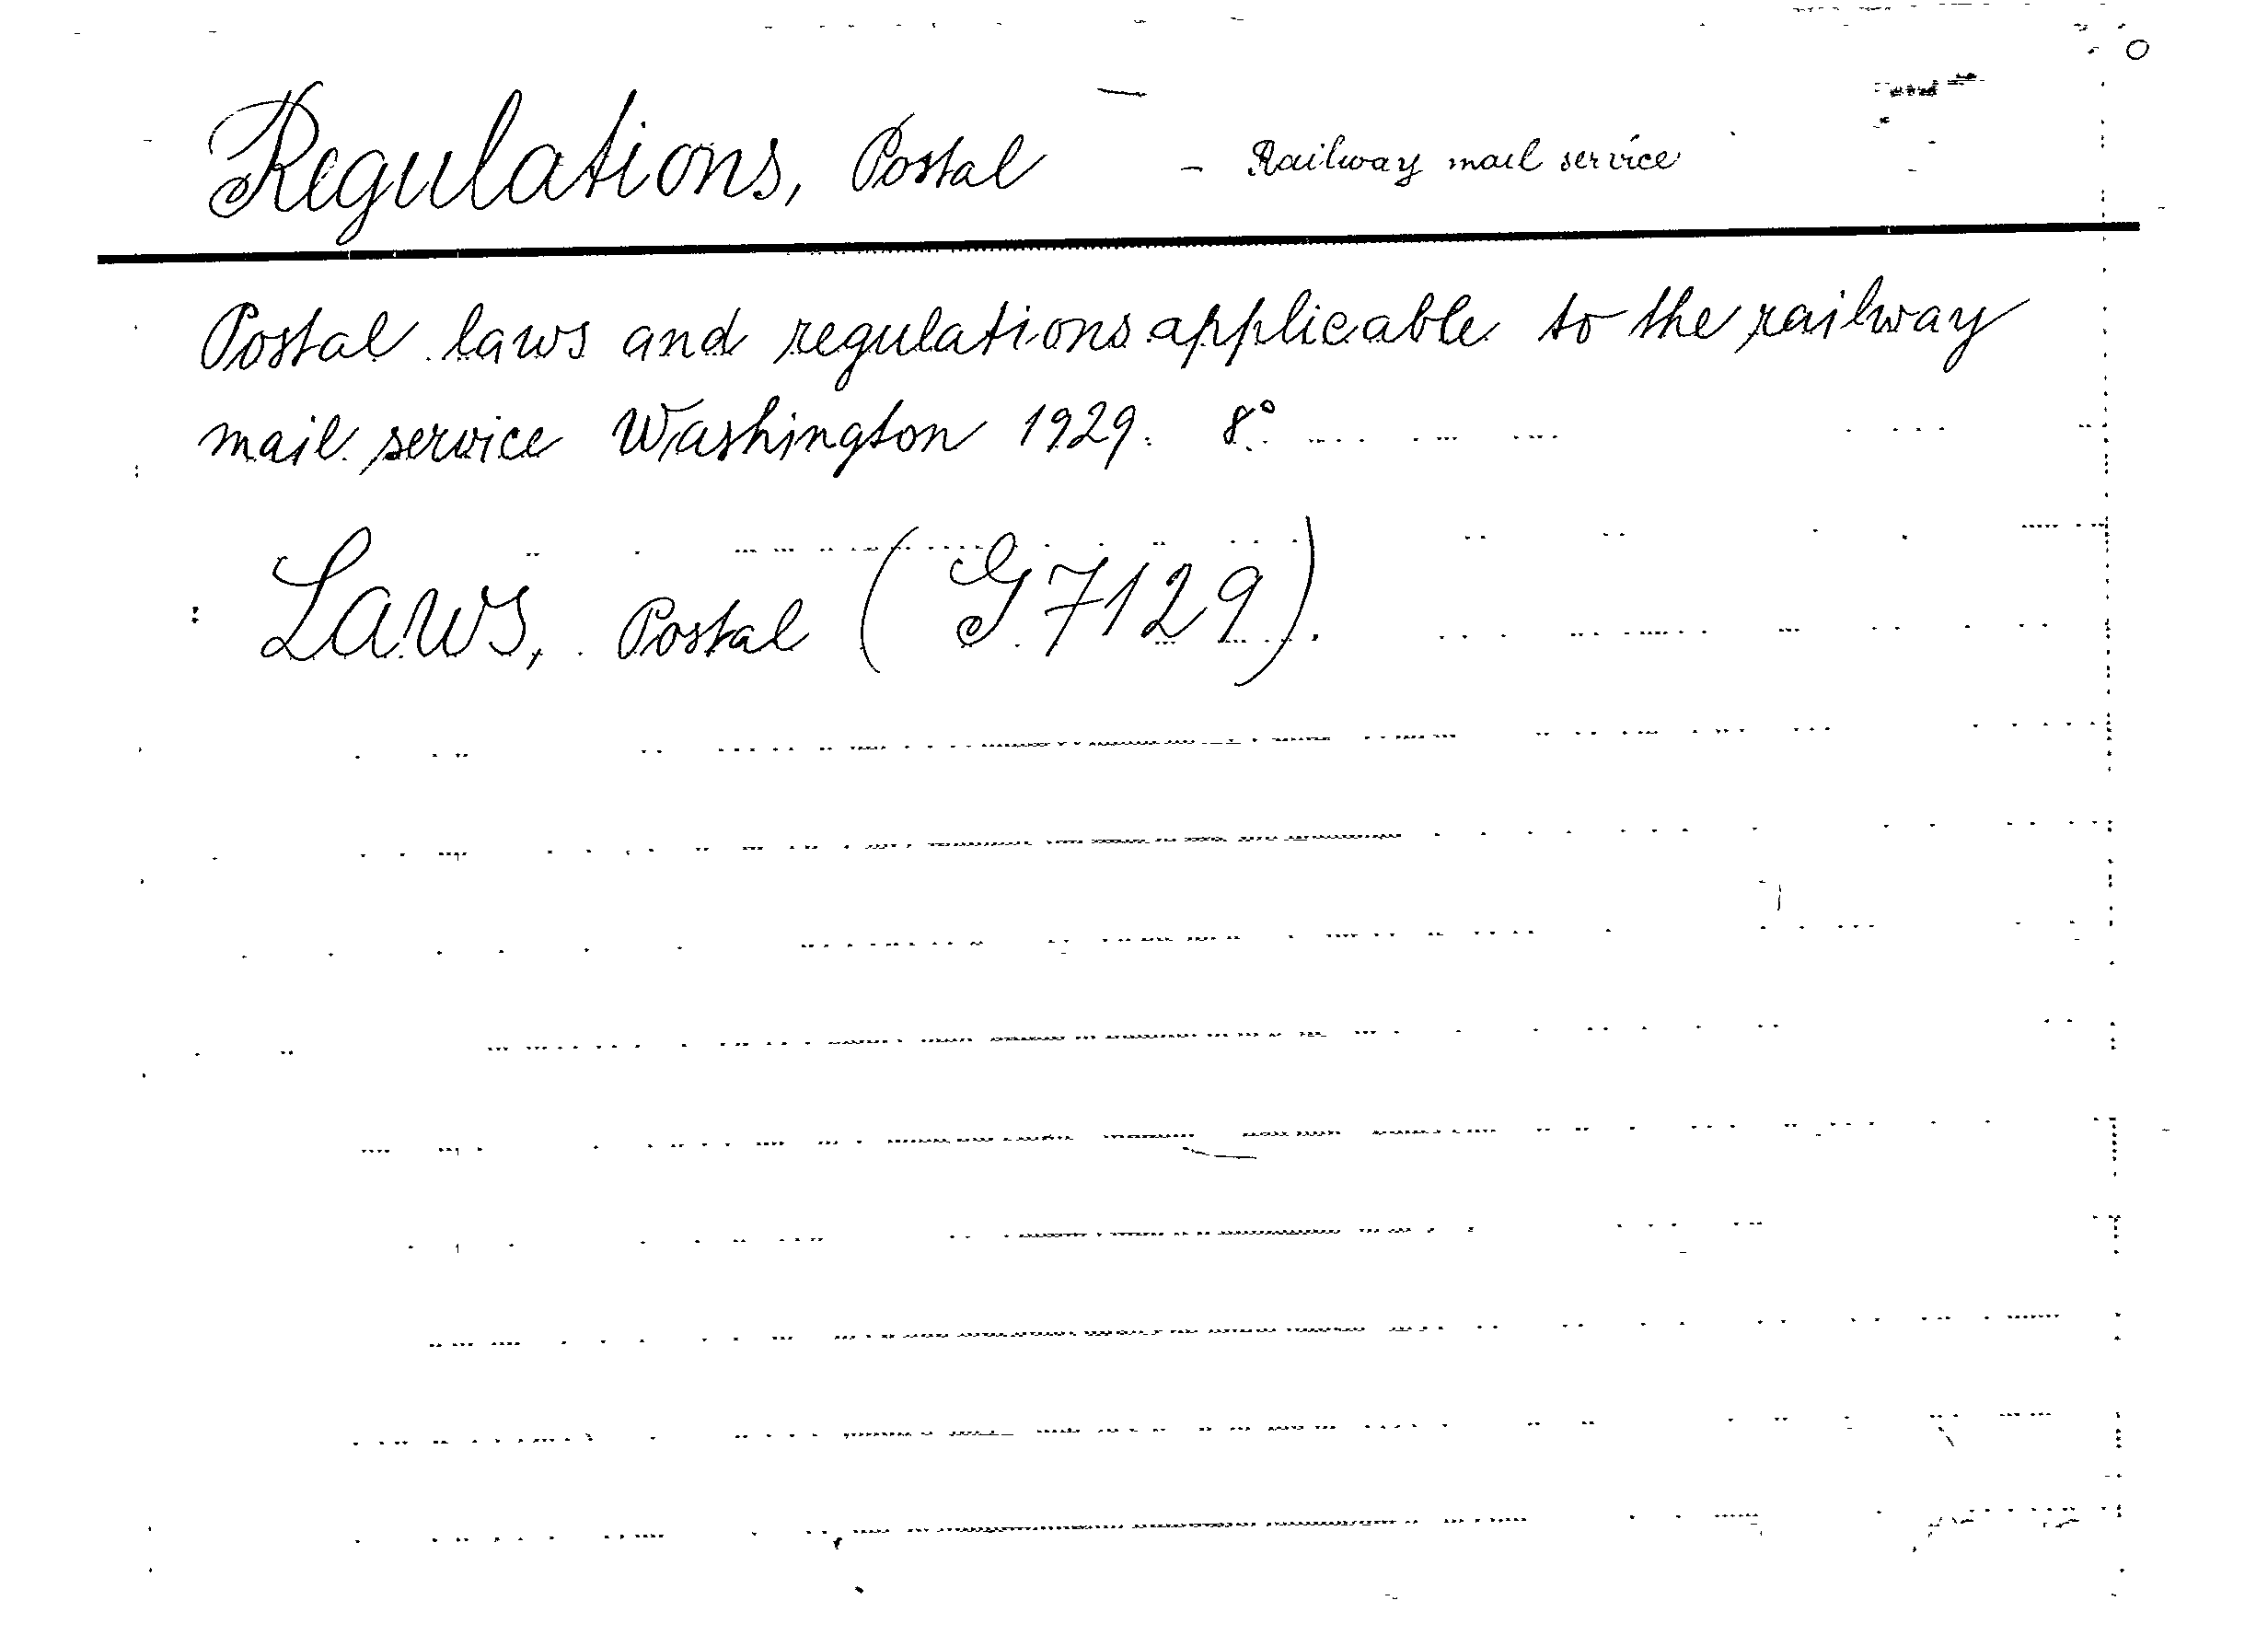 Regulations, Postal - Railway mail service
Postal laws and regulations applicable to the railway
mail service Washington 1929. 8°
: Laws, Postal (G7129).